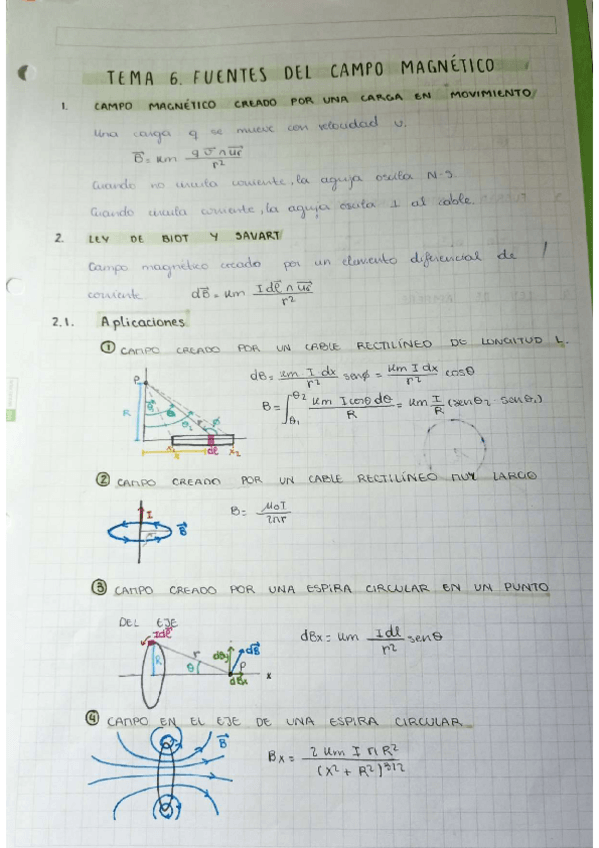 TEMA 6. FUENTES DEL CAMPO MAGNÉTICO
1. CAMPO MAGNÉTICO CREADO POR UNA CARGA EN MOVIMIENTO
Una carga q se mueve con velocidad v.
B⃗ = Km q v⃗ ∧ u⃗r / r²
Cuando no circula corriente, la aguja oscila N-S.
Cuando circula corriente, la aguja oscila ⊥ al cable.
2. LEY DE BIOT Y SAVART
Campo magnético creado por un elemento diferencial de
corriente dB⃗ = Km I dl⃗ ∧ u⃗r / r²
2.1. Aplicaciones
① CAMPO CREADO POR UN CABLE RECTILÍNEO DE LONGITUD L.
dB = Km I dx / r² senϕ = Km I dx / r² cosθ
B = ∫θ1^θ2 Km I cosθ dθ / R = Km I / R (senθ2 - senθ1)
P
R θ1 θ θ2 r
x1 dl x2
x
② CAMPO CREADO POR UN CABLE RECTILÍNEO MUY LARGO
B = μ0 I / 2πr
I
B⃗
r
③ CAMPO CREADO POR UNA ESPIRA CIRCULAR EN UN PUNTO
DEL EJE
dBx = Km I dl / r² senθ
Idl⃗
R r θ dBy dB⃗ P
dBx x
④ CAMPO EN EL EJE DE UNA ESPIRA CIRCULAR
B⃗
Bx = 2 Km I π R² / (x² + R²)^3/2